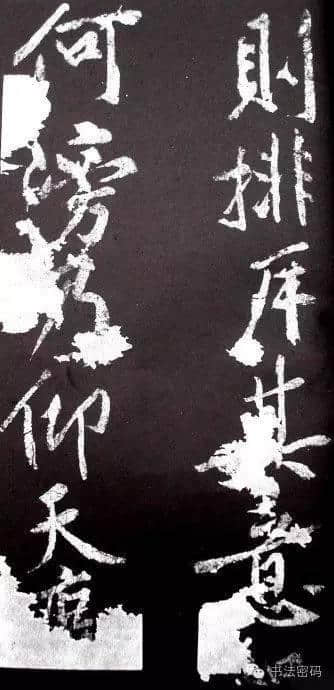 則排斥其意
何謗仰天
书法密码